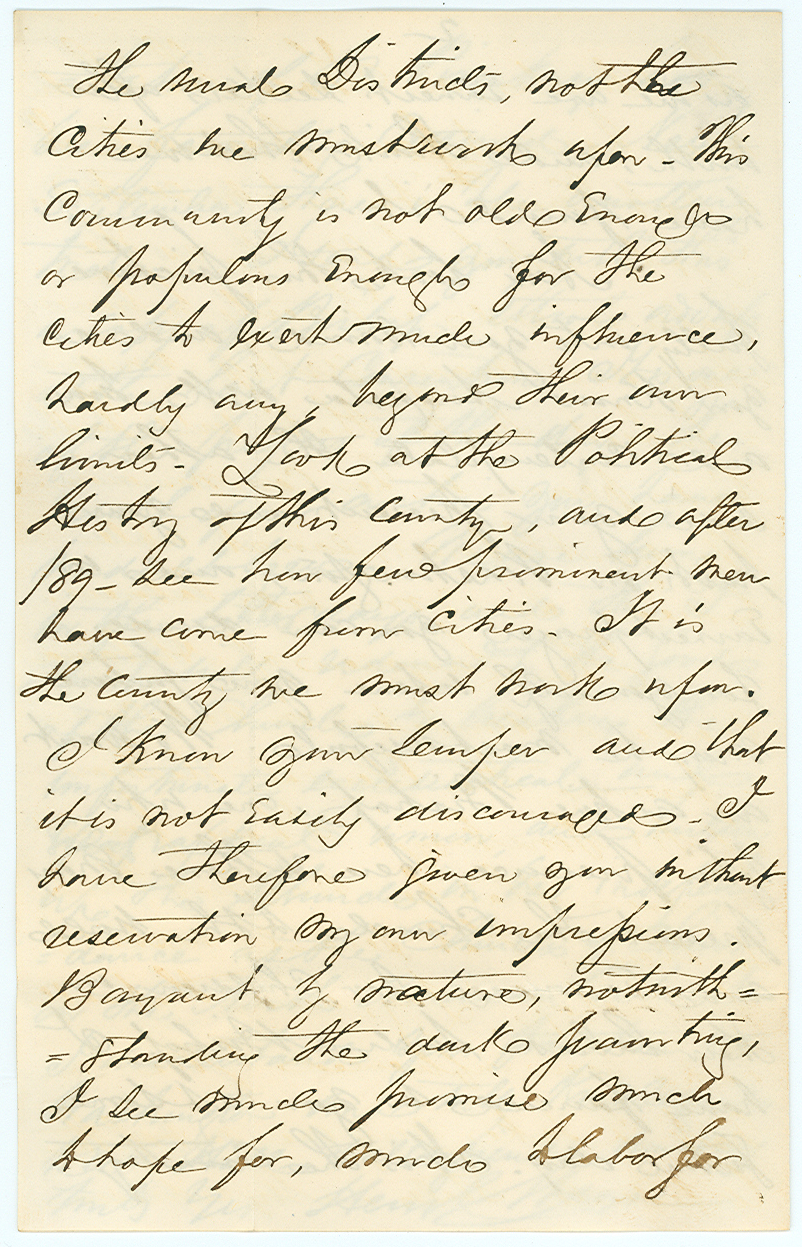 the rural Districts, not the
Cities we must work upon - This
Community is not old Enough
or populous Enough for the
Cities to exert much influence,
hardly any, beyond their own
limits - Look at the Political
History of this County, and after
189 - see how few prominent men
have come from Cities. It is
the County we must work upon.
I Know your temper and that
it is not Easily discouraged - I
have therefore given you without
reservation my own impressions.
Bouyant by nature, notwith=
=standing the dark painting,
I see much promise much
to hope for, much to labor for